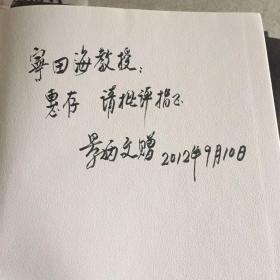 寧田海教授：
惠存 请批评指正
景丙文赠 2012年9月10日